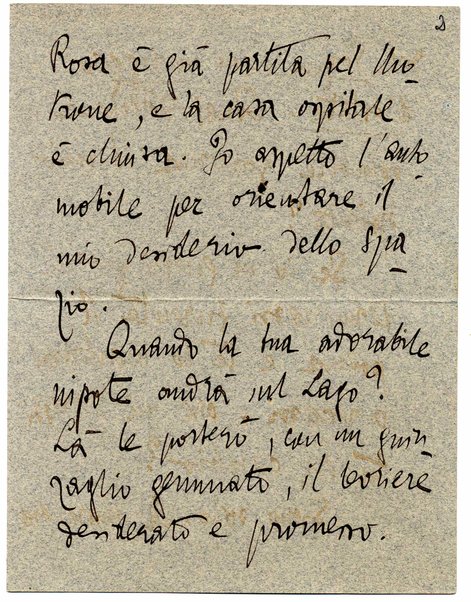 2
Rosa è già partita pel Mo-
trone, e la casa ospitale
è chiusa. Io aspetto l'auto
mobile per orientare il
mio desiderio dello spa-
zio.
Quando la tua adorabile
nipote andrà sul Lago?
Là le porterò, con un guin
zaglio gemmato, il levriere
desiderato e promesso.